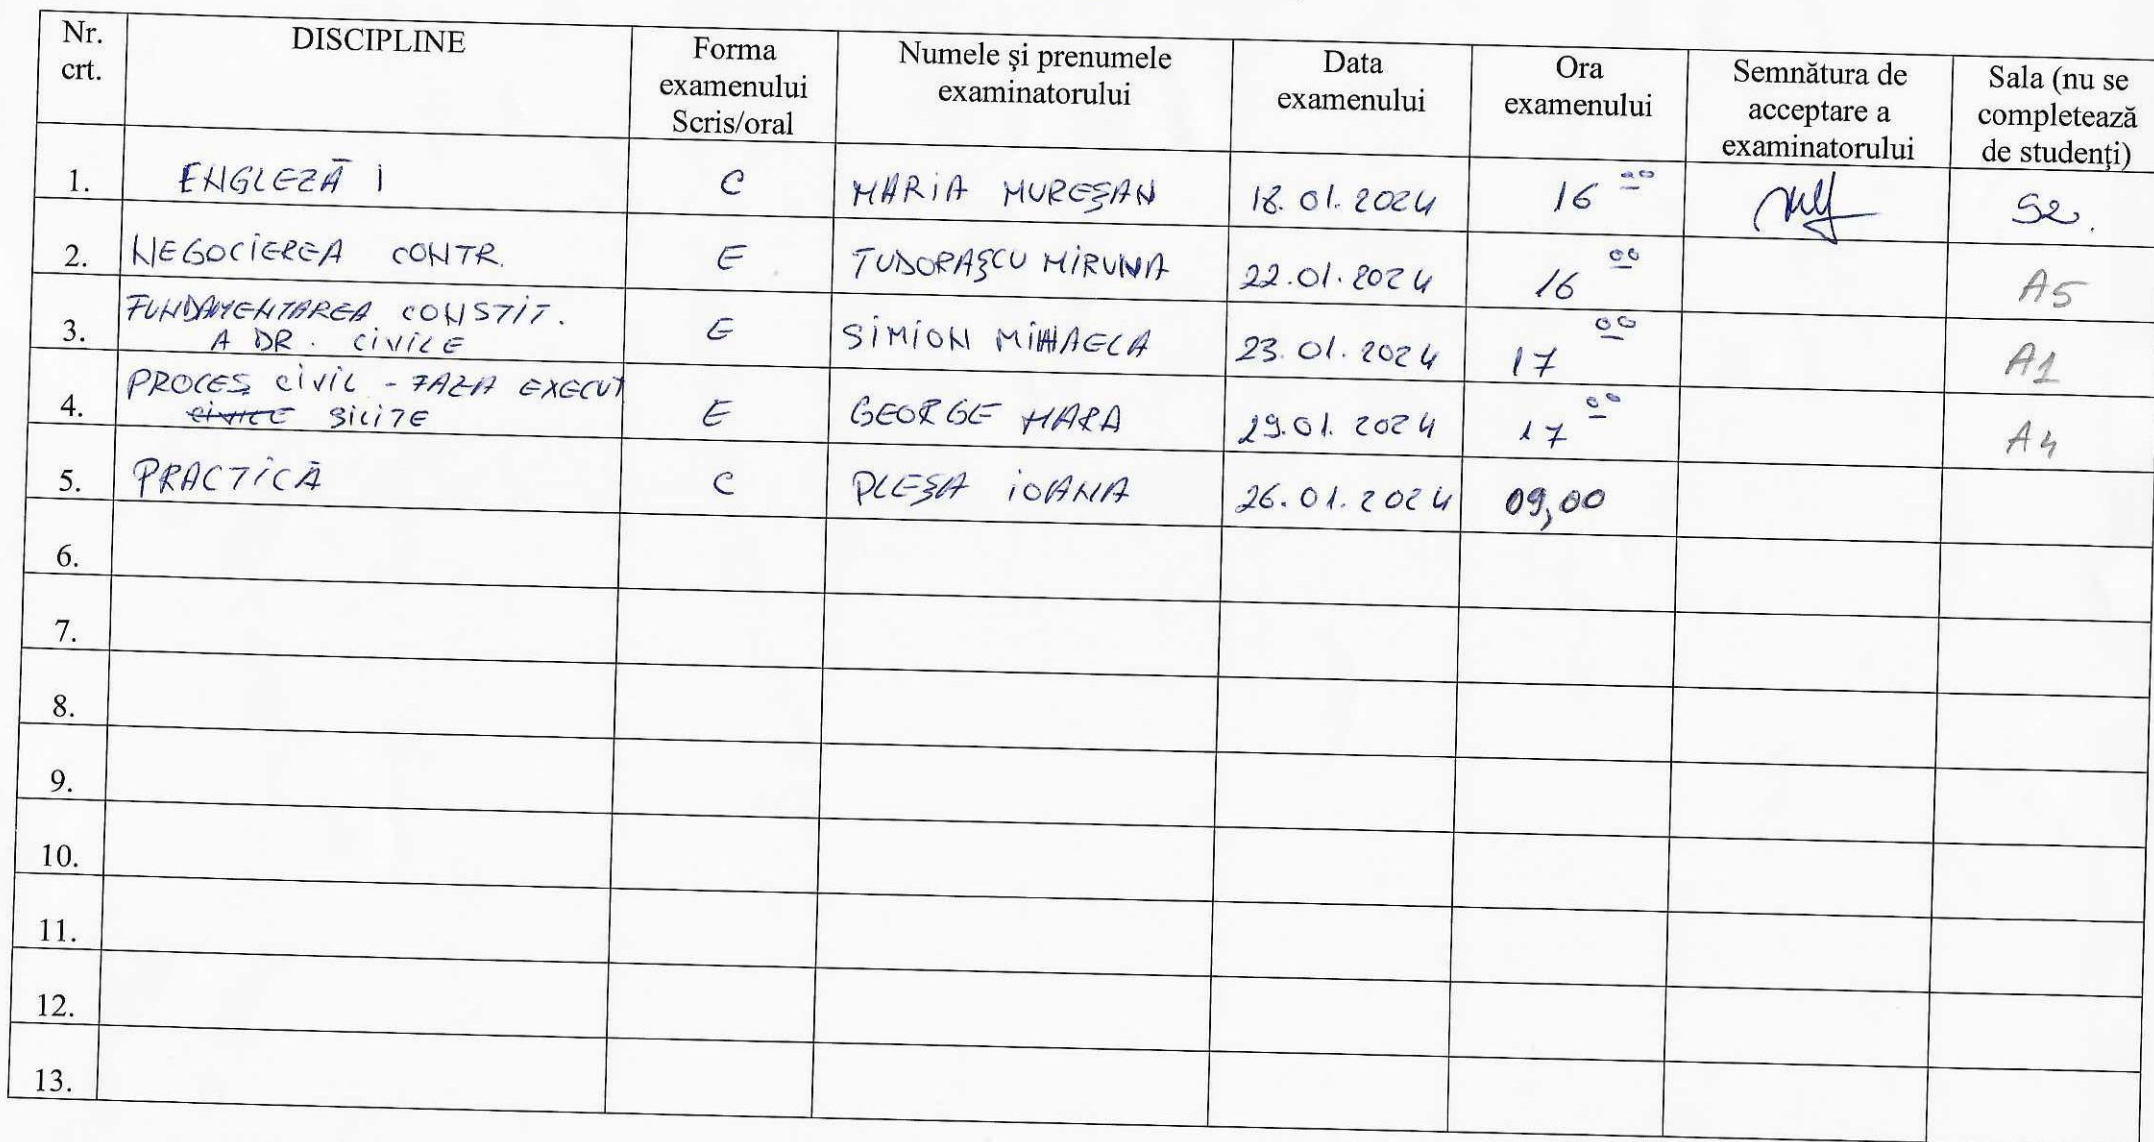 Nr. crt. DISCIPLINE Forma examenului Scris/oral Numele şi prenumele examinatorului Data examenului Ora examenului Semnătura de acceptare a examinatorului Sala (nu se completează de studenţi)
1. ENGLEZĂ I C MARIA MUREŞAN 18.01.2024 16 00 S2.
2. NEGOCIEREA CONTR. E TUDORAŞCU MIRUNA 22.01.2024 16 00 A5
3. FUNDAMENTAREA CONSTIT.
A DR. CIVILE E SIMION MIHAELA 23.01.2024 17 00 A1
4. PROCES CIVIL - FAZA EXECUT
SILITE E GEORGE MARA 29.01.2024 17 00 A4
5. PRACTICĂ C PLEŞA IOANA 26.01.2024 09,00
6.
7.
8.
9.
10.
11.
12.
13.